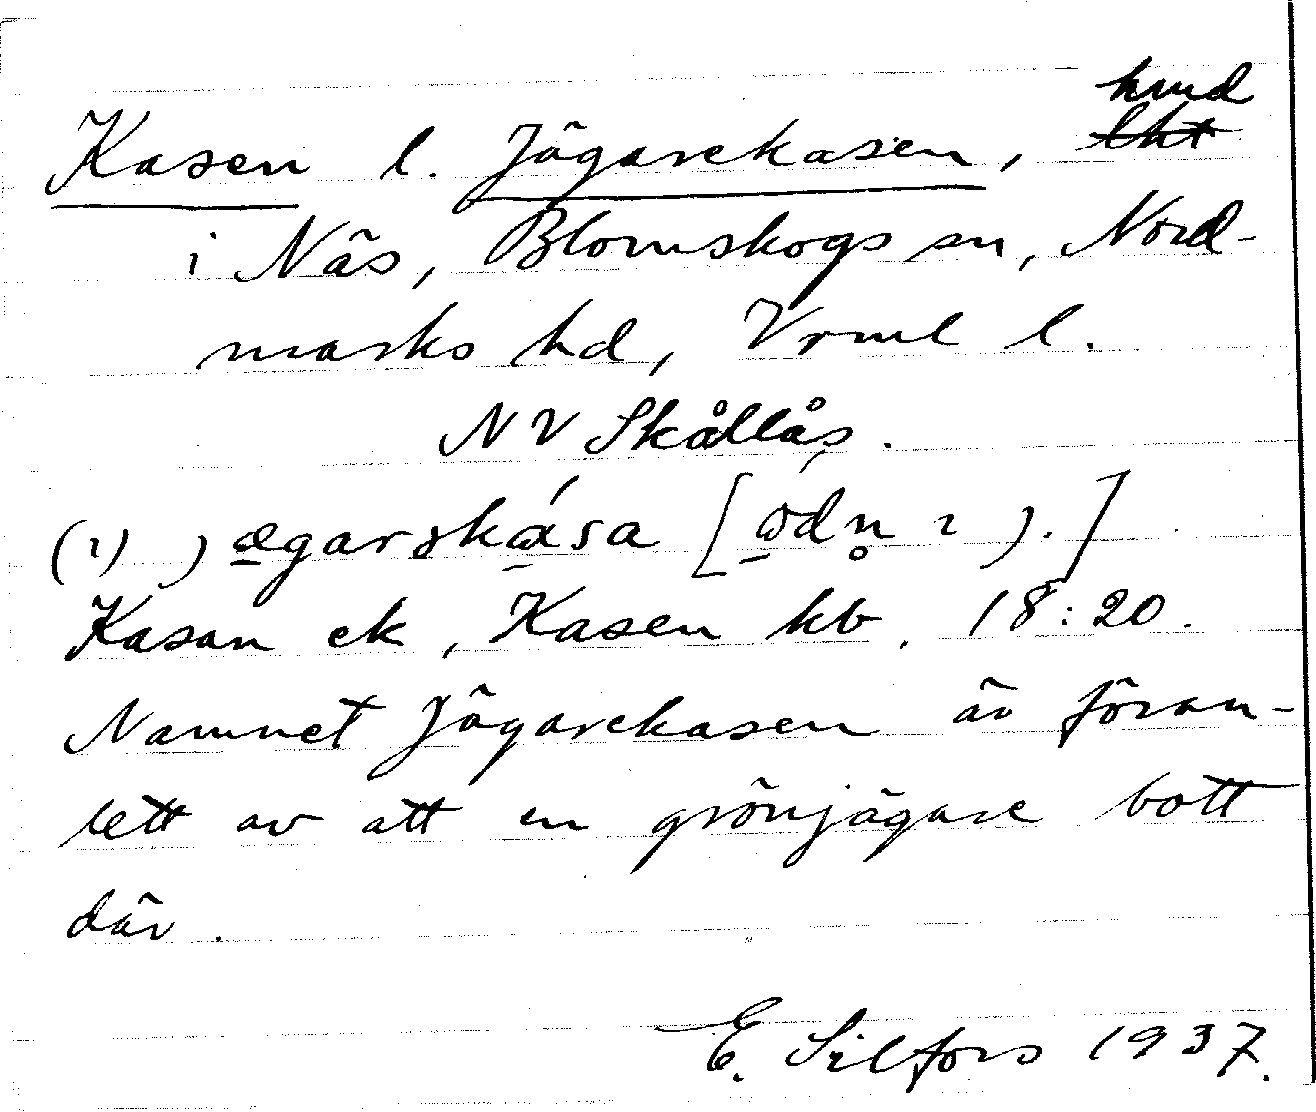 hmd
Kasen l. Jägarekasen, lht
i Näs, Blomskogs sn, Nord-
marks hd, Vrml l.
NV Skållås.
(1) ) ægarskása [ ɷdn̥ 2 ). ]
Kasan ek, Kasen kb. 18:20.
Namnet Jägarekasen är föran-
lett av att en grönjägare bott
där.
E. Silfors 1937.